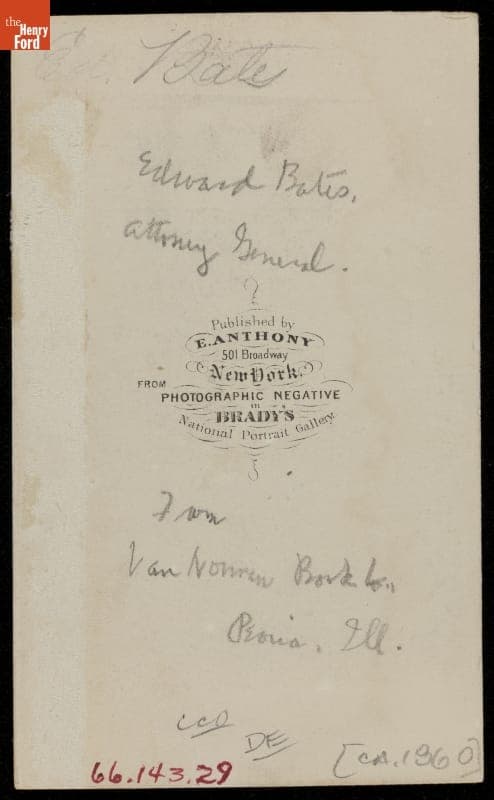 the
Henry
Ford
Ed. Bates
Edward Bates,
Attorney General.
Published by
E. ANTHONY
501 Broadway
New York.
FROM
PHOTOGRAPHIC NEGATIVE
in
BRADY'S
National Portrait Gallery.
From
Van Norman Book Co.,
Peoria, Ill.
DE
66.143.29
[CA. 1860]